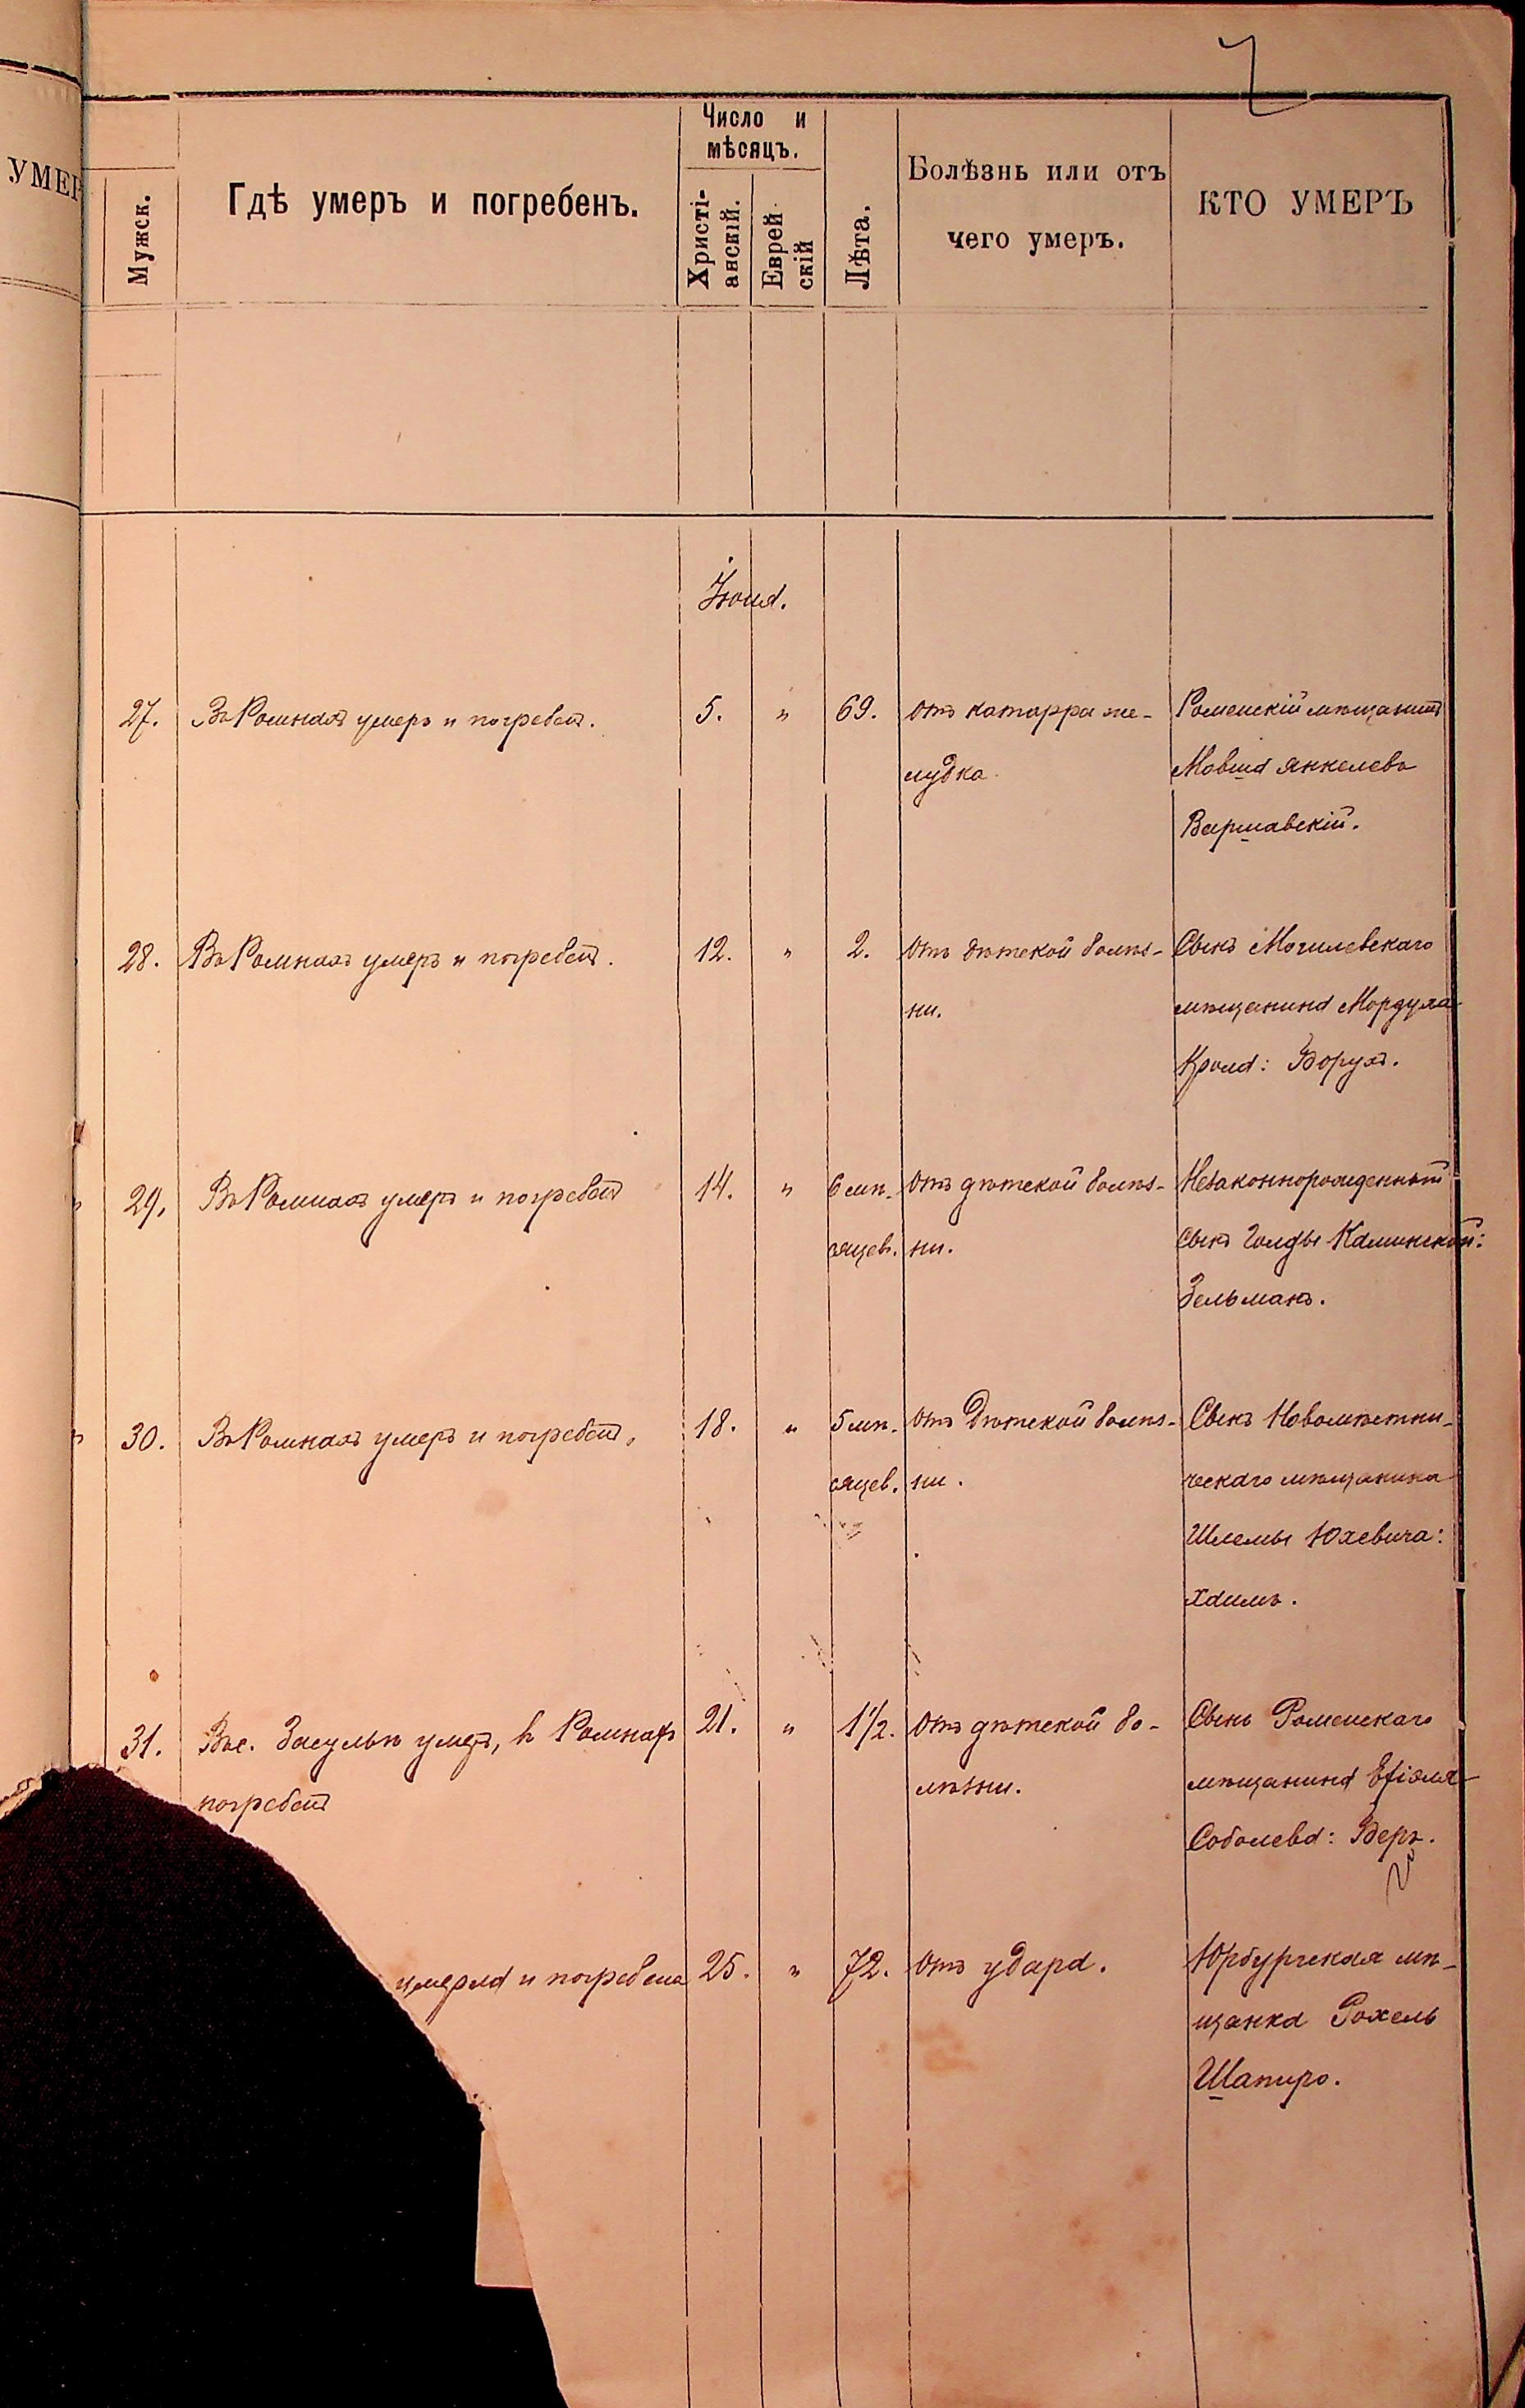 УМЕР
Мужск.
Гдѣ умеръ и погребенъ.
Число и
мѣсяцъ.
Христі-
анскій.
Еврей
скій
Лѣта.
Болѣзнь или отъ
чего умеръ.
КТО УМЕРЪ
Іюня.
27. Въ Ромнахъ умеръ и погребенъ. 5. " 69. Отъ катарра же- Роменскій мѣщанинъ
лудка. Мовша Янкелевъ
Варшавскій.
28. Въ Ромнахъ умеръ и погребенъ. 12. " 2. Отъ дѣтской болѣз- Сынъ Могилевскаго
ни. мѣщанина Мордуха
Крола: Борухъ.
29. Въ Ромнахъ умеръ и погребенъ 14. " 6 мѣ- Отъ дѣтской болѣз- Незаконнорожденный
сяцев. ни. сынъ Голды Каминской:
Зельманъ.
30. Въ Ромнахъ умеръ и погребенъ. 18. " 5 мѣ- Отъ дѣтской болѣз- Сынъ
сяцев. ни. мѣщанина
Шлемы Юхевича:
Хаимъ.
31. Въ с. Засульѣ умеръ, в Ромнахъ 21. " 1 1/2. Отъ дѣтской бо- Сынъ Роменскаго
погребенъ лѣзни. мѣщанина
Соболева: Беръ.
умерла и погребена 25. " 72. Отъ удара. Юрбургская мѣ-
щанка Рохель
Шапиро.